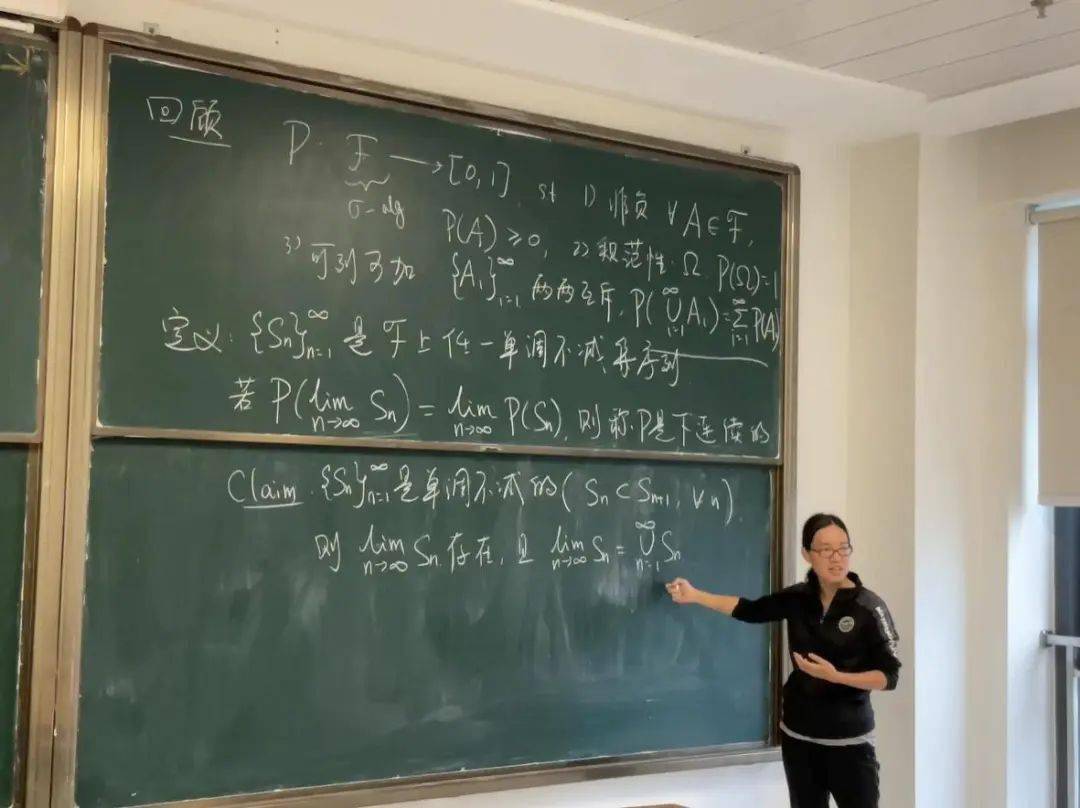 回顾 P: F → [0,1], st 1) 非负 ∀A∈F,
σ-alg P(A)≥0, 2) 规范性. Ω. P(Ω)=1
3) 可列可加 {A_i}_{i=1}^∞ 两两互斥, P(⋃_{i=1}^∞ A_i)=∑_{i=1}^∞ P(A_i)
定义: {S_n}_{n=1}^∞ 是 F 上任一单调不减集序列
若 P(lim_{n→∞} S_n) = lim_{n→∞} P(S_n), 则称 P是下连续的
Claim. {S_n}_{n=1}^∞ 是单调不减的 (S_n ⊂ S_{n+1}, ∀n).
则 lim_{n→∞} S_n 存在, 且 lim_{n→∞} S_n = ⋃_{n=1}^∞ S_n